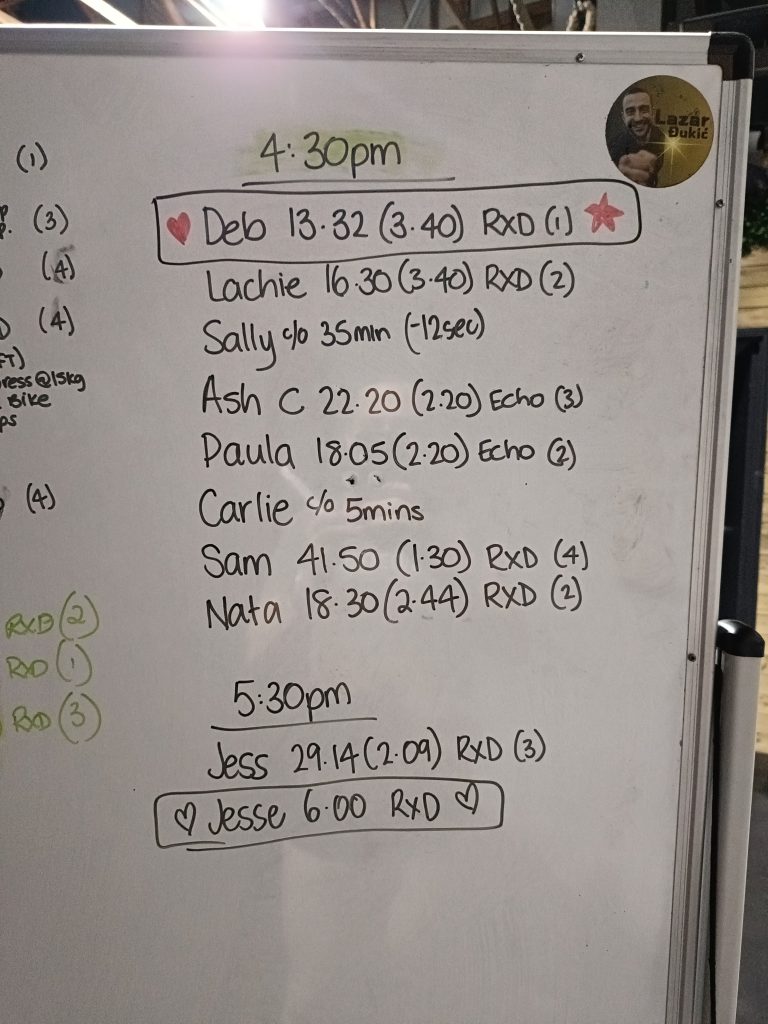 (1)
(3)
(4)
(4)
ress@15kg
Bike
ps
(4)
RXD (2)
RXD (1)
RXD (3)
Lazar
Đukić
4:30pm
Deb 13.32 (3.40) RXD (1)
Lachie 16.30 (3.40) RXD (2)
Sally c/o 35min (-12sec)
Ash C 22.20 (2.20) Echo (3)
Paula 18.05 (2.20) Echo (2)
Carlie c/o 5mins
Sam 41.50 (1.30) RXD (4)
Nata 18.30 (2.44) RXD (2)
5:30pm
Jess 29.14 (2.09) RXD (3)
Jesse 6.00 RXD